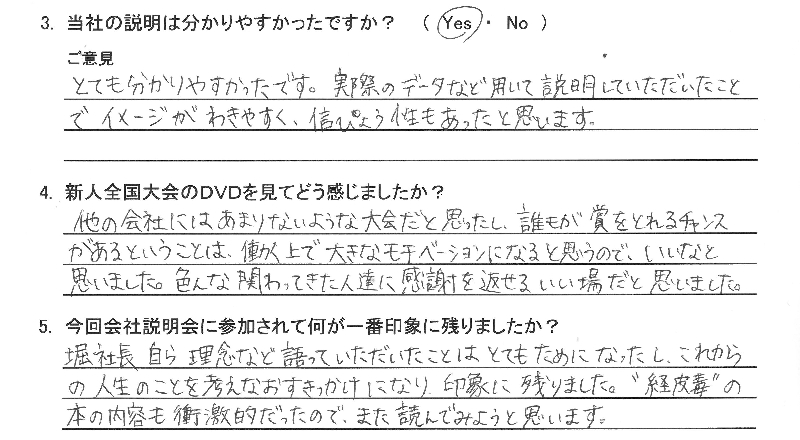 3. 当社の説明は分かりやすかったですか？ （ Yes ・ No ）
ご意見
とても分かりやすかったです。実際のデータなど用いて説明していただいたこと
で イメージが わきやすく、信ぴょう性もあったと思います。
4. 新人全国大会のDVDを見てどう感じましたか？
他の会社にはあまりないような大会だと思ったし、誰もが賞をとれるチャンス
があるということは、働く上で大きなモチベーションになると思うので、いいなと
思いました。色んな関わってきた人達に感謝を返せるいい場だと思いました。
5. 今回会社説明会に参加されて何が一番印象に残りましたか？
堀社長 自ら 理念など語っていただいたことはとてもためになったし、これから
の人生のことを考えなおすきっかけになり 印象に残りました。“経皮毒”の
本の内容も衝激的だったので、また読んでみようと思います。